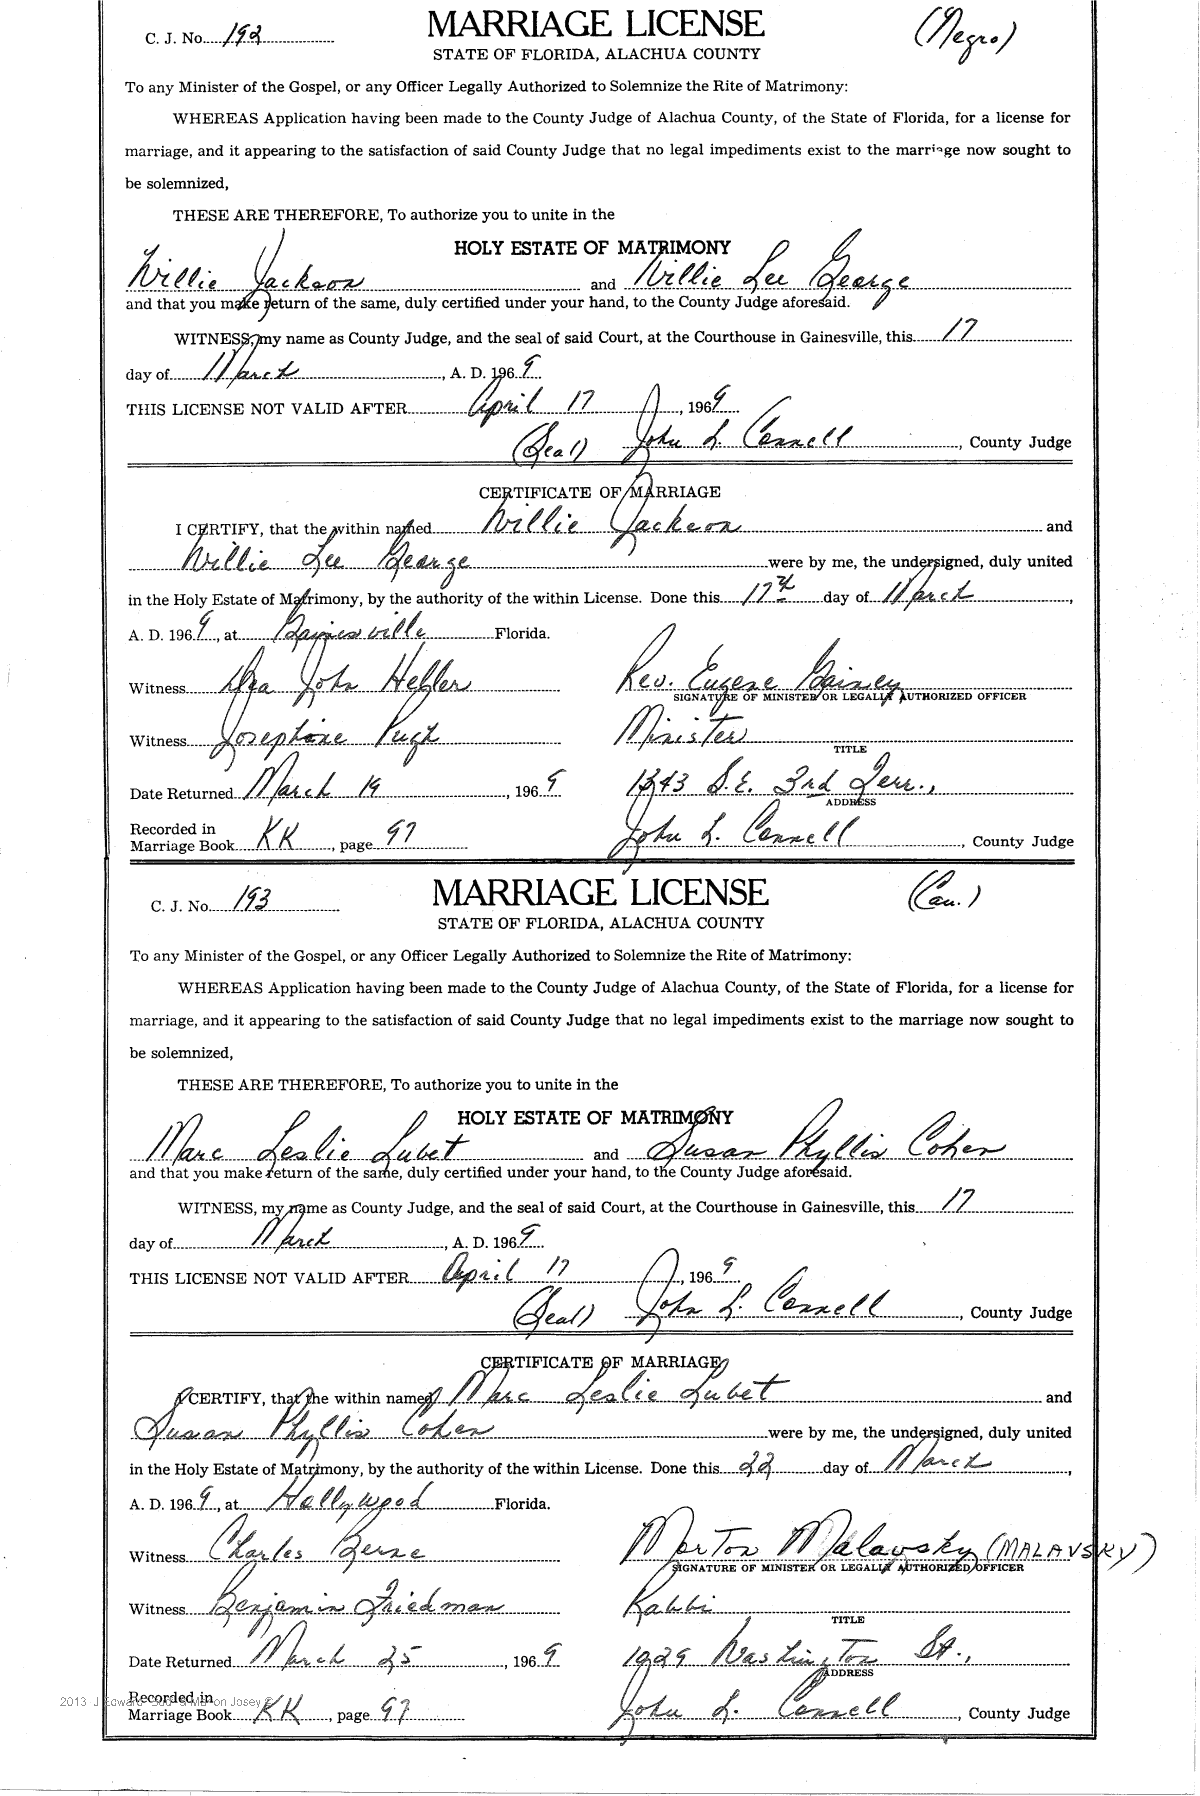 C. J. No. 192
MARRIAGE LICENSE
(Negro)
STATE OF FLORIDA, ALACHUA COUNTY
To any Minister of the Gospel, or any Officer Legally Authorized to Solemnize the Rite of Matrimony:
WHEREAS Application having been made to the County Judge of Alachua County, of the State of Florida, for a license for
marriage, and it appearing to the satisfaction of said County Judge that no legal impediments exist to the marriage now sought to
be solemnized,
THESE ARE THEREFORE, To authorize you to unite in the
HOLY ESTATE OF MATRIMONY
Willie Jackson and Willie Lee George
and that you make return of the same, duly certified under your hand, to the County Judge aforesaid.
WITNESS, my name as County Judge, and the seal of said Court, at the Courthouse in Gainesville, this 17
day of March, A. D. 1969
THIS LICENSE NOT VALID AFTER April 17, 1969
(Seal) John L. Connell, County Judge
CERTIFICATE OF MARRIAGE
I CERTIFY, that the within named Willie Jackson and
Willie Lee George were by me, the undersigned, duly united
in the Holy Estate of Matrimony, by the authority of the within License. Done this 17th day of March,
A. D. 1969, at Gainesville Florida.
Witness John Rev. Eugene Gainey
SIGNATURE OF MINISTER OR LEGALLY AUTHORIZED OFFICER
Witness Josephine Pugh Minister
TITLE
Date Returned March 19, 1969 1343 S.E. 3rd Terr.,
ADDRESS
Recorded in
Marriage Book KK, page 97 John L. Connell, County Judge
C. J. No. 193
MARRIAGE LICENSE
(Cau.)
STATE OF FLORIDA, ALACHUA COUNTY
To any Minister of the Gospel, or any Officer Legally Authorized to Solemnize the Rite of Matrimony:
WHEREAS Application having been made to the County Judge of Alachua County, of the State of Florida, for a license for
marriage, and it appearing to the satisfaction of said County Judge that no legal impediments exist to the marriage now sought to
be solemnized,
THESE ARE THEREFORE, To authorize you to unite in the
HOLY ESTATE OF MATRIMONY
Marc Leslie Lubet and Susan Phyllis Cohen
and that you make return of the same, duly certified under your hand, to the County Judge aforesaid.
WITNESS, my name as County Judge, and the seal of said Court, at the Courthouse in Gainesville, this 17
day of March, A. D. 1969
THIS LICENSE NOT VALID AFTER April 17, 1969
(Seal) John L. Connell, County Judge
CERTIFICATE OF MARRIAGE
I CERTIFY, that the within named Marc Leslie Lubet and
Susan Phyllis Cohen were by me, the undersigned, duly united
in the Holy Estate of Matrimony, by the authority of the within License. Done this 22 day of March,
A. D. 1969, at Hollywood Florida.
Witness Charles Berne Morton Malavsky (MALAVSKY)
SIGNATURE OF MINISTER OR LEGALLY AUTHORIZED OFFICER
Witness Benjamin Friedman Rabbi
TITLE
Date Returned March 25, 1969 1929 Washington St.,
ADDRESS
2013 J Edward Josey
Recorded in
Marriage Book KK, page 97 John L. Connell, County Judge